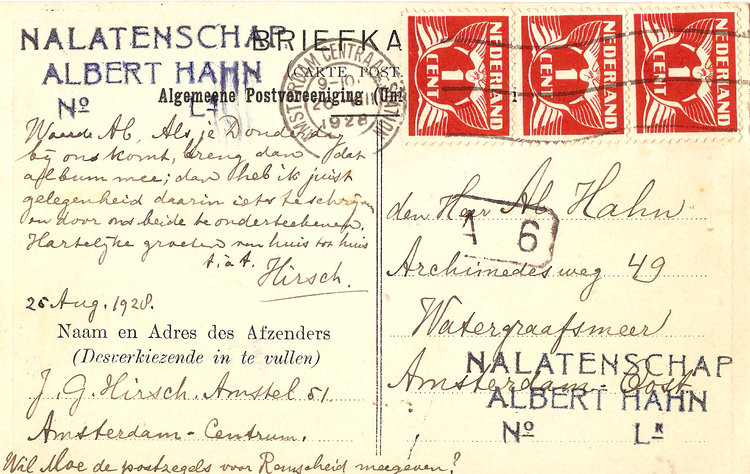 NALATENSCHAP
ALBERT HAHN
No LR
BRIEFKA
(CARTE POST
Algemeene Postvereeniging (Uni
AMSTERDAM CENTRAAL STATION
1928
NEDERLAND
1
CENT
NEDERLAND
1
CENT
NEDERLAND
1
CENT
Waarde Ab, Als je Donderdag
bij ons komt, breng dan dat
aflbum mee; dan heb ik juist
gelegenheid daarin iets te schrijven
en door ons beide te onderteekenen.
Hartelijke groeten van huis tot huis
t.à.t.
Hirsch.
25 Aug. 1928.
Naam en Adres des Afzenders
(Desverkiezende in te vullen)
J. G. Hirsch. Amstel 51.
Amsterdam-Centrum.
Wil Moe de postzegels voor Remscheid meegeven?
den Heer Ab. Hahn
1 6
Archimedesweg 49
Watergraafsmeer
Amsterdam-Oost
NALATENSCHAP
ALBERT HAHN
No LR